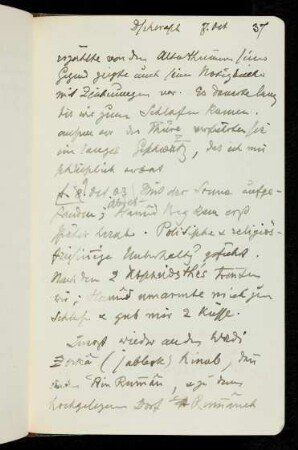 Dscherasch 8. Oct 37
erzählte von den Altertümern seiner
Gegend zeigte auch sein Notizbuch
mit Zeichnungen vor. Es dauerte lang
bis wir zum Schlafen kamen.
vor der Thüre sie
ein langes Geschwätz, das ich mir
schließlich verbat
9. Oct. 03 Mit der Sonne aufge-
standen; Hamid Beg kam erst
später herab. Politische & religiös-
Unterhaltg geführt.
Nach dem 2 Frühstück
wir; Hamid umarmte mich zum
Schluß & gab mir 2 Küsse.
Zuerst wieder an den Wadi
Zerka (Jabbok) hinab, dann
Ain Rumân, &
hochgelegenen Dorf Rumâneh